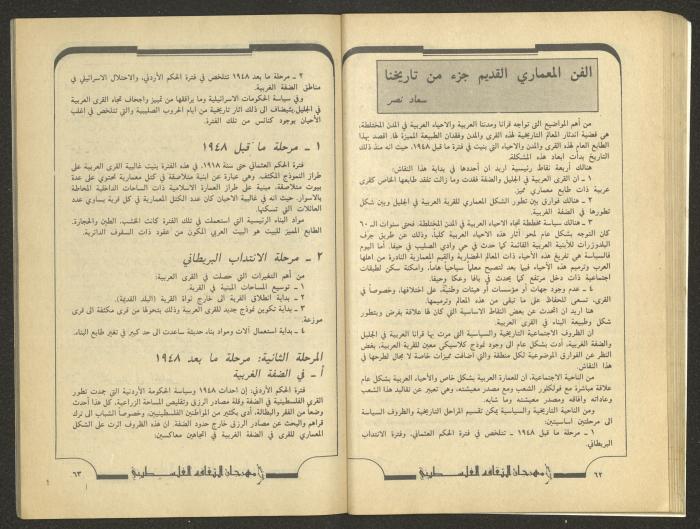 الفن المعماري القديم جزء من تاريخنا
سعاد نصر
من أهم المواضيع التي تواجه قرانا ومدننا العربية والاحياء العربية في المدن المختلطة،
هي قضية اندثار المعالم التاريخية لهذه القرى والمدن وفقدان الطبيعة المميزة لها. اقصد بهذا
الطابع العام لهذه القرى والمدن والاحياء التي بنيت في فترة ما قبل ١٩٤٨، حيث انه منذ ذلك
التاريخ بدأت ابعاد هذه المشكلة.
هنالك أربعة نقاط رئيسية اريد ان أحددها في بداية هذا النقاش:
١ ـ ان القرى العربية في الجليل والضفة فقدت وما زالت تفقد طابعها الخاص كقرى
عربية ذات طابع معماري مميز.
٢ ـ هنالك فوارق بين تطور الشكل المعماري للقرية العربية في الجليل وبين شكل
تطورها في الضفة الغربية.
٣ ـ هنالك سياسة مخططة تجاه الاحياء العربية في المدن المختلطة. فحتى سنوات الـ ٦٠
كان التوجه بشكل عام لمحو آثار هذه الاحياء العربية كلياً، وذلك عن طريق جرف
البلدوزرات للأبنية العربية القائمة كما حدث في حي وادي الصليب في حيفا. أما اليوم
فالسياسة هي تفريغ هذه الأحياء ذات المعالم الحضارية والقيم المعمارية النادرة من اهلها
العرب وترميم هذه الأحياء فيما بعد لتصبح معلماً سياحياً هاماً، وامكنة سكن لطبقات
اجتماعية ذات دخل مرتفع كما يحدث في يافا وعكا وحيفا.
٤ ـ عدم وجود جهات أو مؤسسات أو هيئات وطنية، على اختلافها، وخصوصاً في
القرى، تسعى للحفاظ على ما تبقى من هذه المعالم وترميمها.
هنا اريد ان اتحدث عن بعض النقاط الاساسية التي كان لها علاقة بفرض وبتطور
شكل وطبيعة البناء في القرى العربية.
ان الظروف الاجتماعية التاريخية والسياسية التي مرت بها قرانا العربية في الجليل
والضفة الغربية، أدت بشكل عام الى وجود نموذج كلاسيكي معين للقرية العربية، بغض
النظر عن الفوارق الموضوعية لكل منطقة والتي أضافت مميزات خاصة لا مجال لطرحها في
هذا النقاش.
من الناحية الاجتماعية، ان للعمارة العربية بشكل خاص والأحياء العربية بشكل عام
علاقة مباشرة مع فولكلور الشعب ومع مصدر معيشته، وهي تعبير عن تقاليد هذا الشعب
وعاداته وآفاقه ومصدر معيشته وما شابه.
ومن الناحية التاريخية والسياسية يمكن تقسيم المراحل التاريخية والظروف السياسية
الى مرحلتين أساسيتين:
١ ـ مرحلة ما قبل ١٩٤٨ ـ تتلخص في فترة الحكم العثماني، وفترة الانتداب
البريطاني.
٦٢ مهرجان الثقافة الفلسطيني
٢ ـ مرحلة ما بعد ١٩٤٨ تتلخص في فترة الحكم الأردني، والاحتلال الاسرائيلي في
مناطق الضفة الغربية.
وفي سياسة الحكومات الاسرائيلية وما يرافقها من تمييز واجحاف تجاه القرى العربية
في الجليل يضاف الى ذلك آثار تاريخية من أيام الحروب الصليبية والتي تتلخص في أغلب
الأحيان بوجود كنائس من تلك الفترة.
١ ـ مرحلة ما قبل ١٩٤٨
فترة الحكم العثماني حتى سنة ١٩١٨، في هذه الفترة بنيت غالبية القرى العربية على
طراز النموذج المكثف. وهي عبارة عن ابنية متلاصقة في كتل معمارية تحتوي على عدة
بيوت متلاصقة، مبنية على طراز العمارة الاسلامية ذات الساحات الداخلية المحاطة
بالاسوار. حيث انه في غالبية الاحيان كان عدد الكتل المعمارية في كل قرية يساوي عدد
العائلات التي تسكنها.
مواد البناء الرئيسية التي استعملت في تلك الفترة كانت الخشب، الطين والحجارة.
الطابع المميز للبيت هو البيت العربي المكون من عقود ذات السقوف الدائرية.
٢ ـ مرحلة الانتداب البريطاني
من أهم التغيرات التي حصلت في القرى العربية:
١ ـ توسيع المساحات المبنية في القرية.
٢ ـ بداية انطلاق القرية الى خارج نواة القرية (البلد القديمة).
٣ ـ بداية تكوين نموذج جديد للقرى العربية وذلك بتحولها من قرى مكثفة الى قرى
موزعة.
٤ ـ بداية استعمال آلات ومواد بناء حديثة ساعدت الى حد كبير في تغير طابع البناء.
المرحلة الثانية: مرحلة ما بعد ١٩٤٨
أ ـ في الضفة الغربية
فترة الحكم الأردني: إن احداث ١٩٤٨ وسياسة الحكومة الأردنية التي جمدت تطور
القرى الفلسطينية في الضفة وقلة مصادر الرزق وتقليص المساحة الزراعية، كل هذا أحدث
وضعاً من الفقر والبطالة، أدى بكثير من المواطنين الفلسطينيين، وخصوصاً الشباب الى ترك
قراهم والبحث عن مصادر الرزق خارج حدود الضفة. ان هذه الظروف اثرت على الشكل
المعماري للقرى في الضفة الغربية في اتجاهين معاكسين:
مهرجان الثقافة الفلسطيني ٦٣